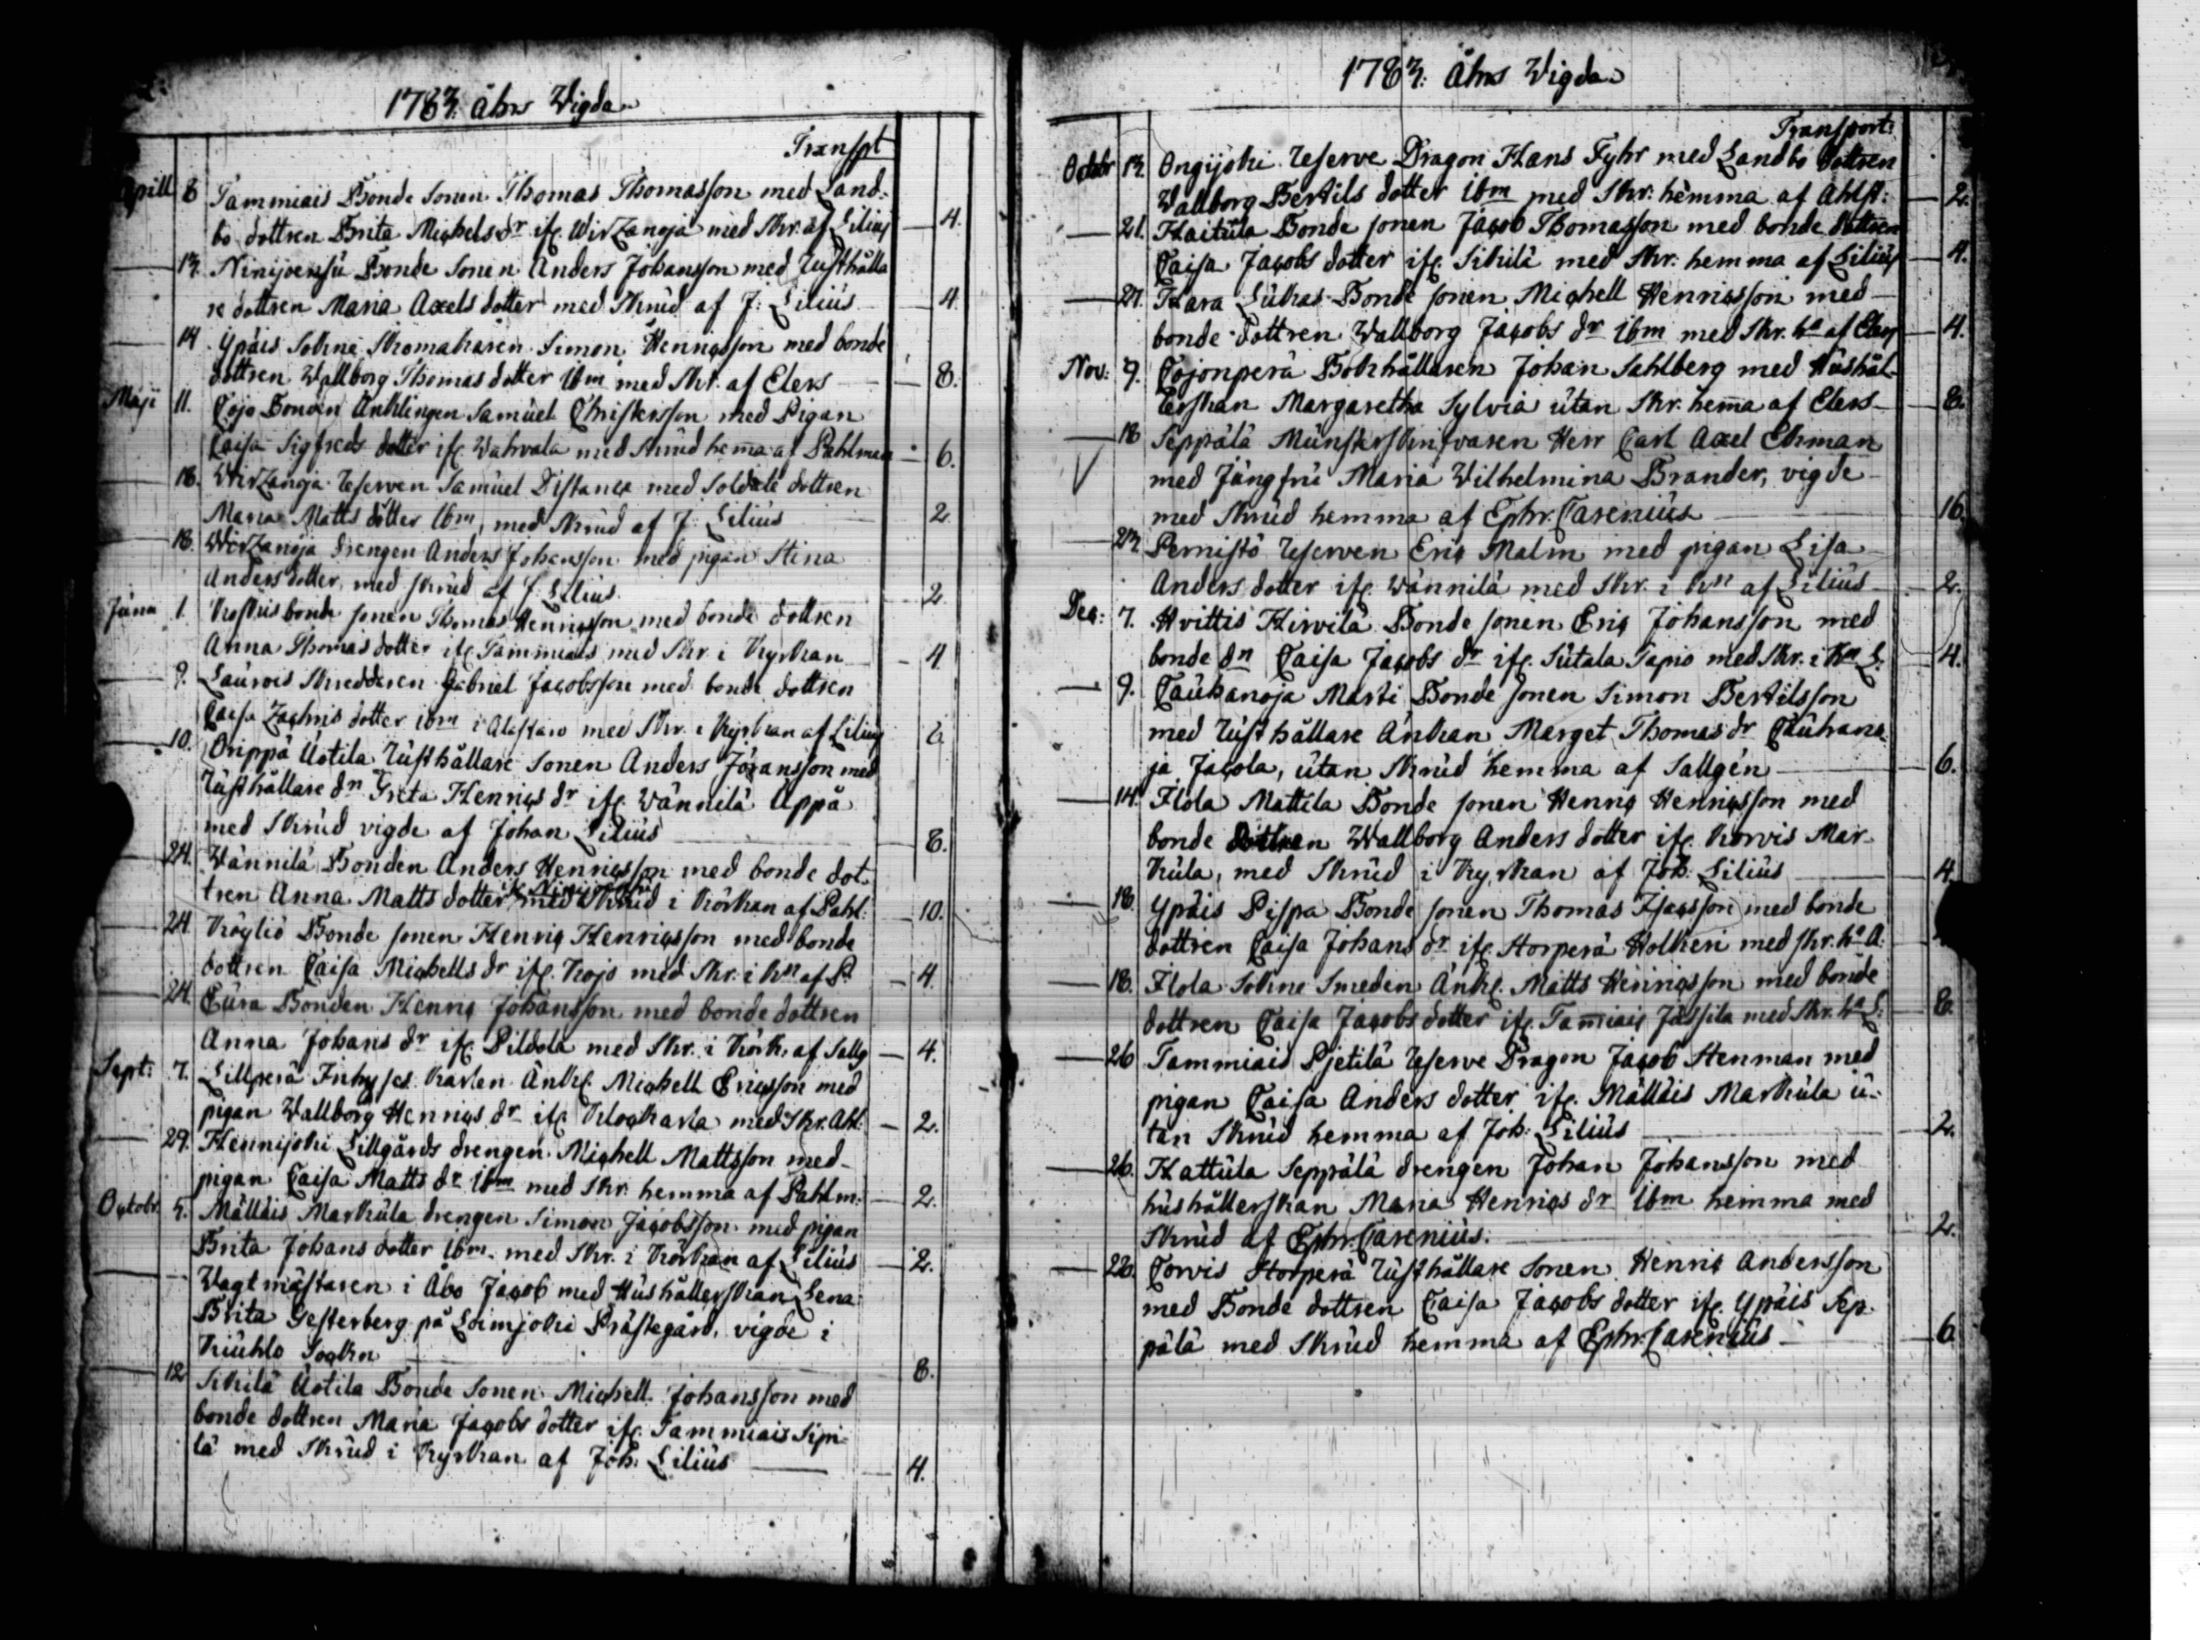 1783. Åhrs Wigda
Transpt
Aprill 8 Tammiais Bonde Sonen Thomas Thomasson med Land-
bo dottren Brita Michels dr ifr. Wirzanoja med Skr. af Lilius 4.
13. Ninijoensu Bonde Sonen Anders Johansson med Rusthålla
re dottren Maria Axels dotter med Skrud af J: Lilius 4.
14 Ypäis Sokne Skomakaren Simon Hennricsson med bonde
dottren Wallborg Thomas dotter ibm med Skr. af Elers 8.
Maji 11. Cojo Bonden Änklingen Samuel Christersson med Pigan
Caisa Sigfreds dotter ifr. Wahvala med Skrud hema af Pahlman 6.
18. Wirzanoja Reserven Samuel Distance med Soldate dottren
Maria Matts dotter ibm, med Skrud af J. Lilius 2
18. Wirzanoja drengen Anders Johansson med pigan Stina
Anders dotter, med skrud af J. Lilius. 2
Juna 1. Koskis bonde sonen Thomas Henricsson med bonde dottren
Anna Thomas dotter ifr. Tammiais med Skr. i Kyrkan 4
9. Laurois Skredderen Gabriel Jacobsson med bonde dottren
Caisa Zachris dotter ibm i Alastaro med Skr. i Kyrkan af Lilius 6
10. Orippä Uotila Rusthållare Sonen Anders Jöransson med
Rusthållare dn Greta Henrics dr ifr. Wännilä Uppå
med Skrud vigde af Johan Lilius 8.
24. Wännilä Bonden Anders Henricsson med bonde dot
tren Anna Matts dotter ifr. Ninijoensu med Skrud i Körkan af Pahl: 10.
24. Köyliö Bonde sonen Henric Henricsson med bonde
dottren Caisa Michells dr ifr. Kojo med Skr. i Kn af P. 4.
24. Eura Bonden Henric Johansson med bonde dottren
Anna Johans dr ifr. Pildola med Skr. i Körk. af Sallg 4.
Sept: 7. Lillperä Inhyses Karlen Änkl. Michell Ericsson med
pigan Wallborg Henrics dr ifr. Klockarla med Skr. Ahl. 2.
29. Hennijoki Lillgårds drengen Michell Mattsson med
pigan Caisa Matts dr ibm med Skr. hemma af Pahlm: 2.
Octobr 5. Mälläis Markula drengen Simon Jacobsson med pigan
Brita Johans dotter ibm. med Skr. i Körkan af Lilius 2.
Wagtmästaren i Åbo Jacob med Hushållerskan Lena
Brita Gesterberg på Loimjoki Prästegård, vigde i
Kiuhlo Sockn 8.
12 Sikilä Uotila Bonde Sonen Michell Johansson med
bonde dottren Maria Jacobs dotter ifr. Tammiais Sipi-
lä med Skrud i Kyrkan af Joh. Lilius 4.
1783. Åhrs Wigda
Transport:
Octobr 13. Ongijoki Reserve Dragon Hans Fyhr med Landbo dottren
Wallborg Bertils dotter ibm med Skr. hemma af Ahlst: 2.
21. Haitula Bonde sonen Jacob Thomasson med bonde dottren
Caisa Jacobs dotter ifr. Sikilä med Skr. hemma af Lilius 4.
27. Hara Lukas Bonde sonen Michell Henricsson med
bonde dottren Wallborg Jacobs dr ibm med Skr. ha af Elers 4.
Nov: 9. Cojonperä Bokhållaren Johan Sahlberg med Hushål-
lerskan Margaretha Sylvia utan Skr. hema af Elers 8.
18 Seppälä Munsterskrifvaren Herr Carl Axel Ekman
med Jungfru Maria Wilhelmina Brander, vigde
med Skrud hemma af Ephr. Carenius 16.
23. Pernistö Reserven Eric Malm med pigan Lisa
Anders dotter ifr. Wännilä med Skr. i Kn af Lilius 2.
Dec: 7. Hvittis Hirvilä Bonde sonen Eric Johansson med
bonde dn Caisa Jacobs dr ifr. Sutala Tapio med Skr. i Kn L: 4.
9. Cauhanoja Marti Bonde sonen Simon Bertilsson
med Rusthållare Änkan Marget Thomas dr Cauhano
ja Jacola, utan Skrud hemma af Sallgén 6.
14. Hola Mattila Bonde sonen Henric Henricsson med
bonde dottren Wallborg Anders dotter ifr. Korvis Mar-
kula, med Skrud i Kyrkan af Joh: Lilius 4.
18. Ypäis Pispa Bonde sonen Thomas Isacsson med bonde
dottren Caisa Johans dr ifr. Storperä Holken med skr. ha A.
18. Hola Sokne Smeden Änkl. Matts Henricsson med bonde
dottren Caisa Jacobs dotter ifr. Tamiais Jässila med Skr. ha L: 8.
26 Tammiais Pjetilä Reserve Dragon Jacob Stenman med
pigan Caisa Anders dotter ifr. Mälläis Markula u-
tan Skrud hemma af Joh: Lilius 2.
26. Hattula Seppälä drengen Johan Johansson med
hushållerskan Maria Henrics dr ibm hemma med
Skrud af Ephr. Carenius. 2.
28. Corvis Storperä Rusthållare Sonen Henric Andersson
med Bonde dottren Caisa Jacobs dotter ifr. Ypäis Sep-
pälä med Skrud hemma af Ephr. Carenius 6